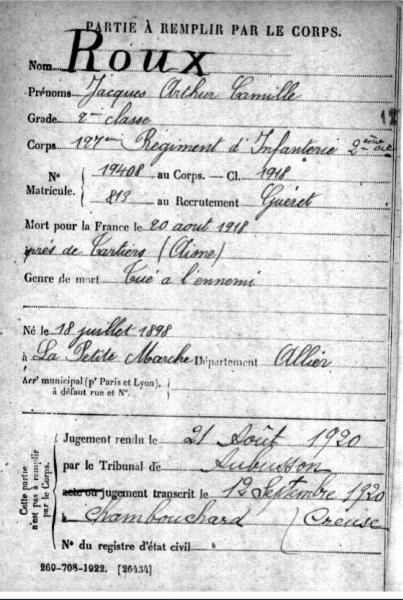 PARTIE À REMPLIR PAR LE CORPS.
Nom ROUX
Prénoms Jacques Arthur Camille
Grade 2me classe
Corps 127me Régiment d'Infanterie 2ème Cie
N° Matricule. { 19408 au Corps. — Cl. 1918
813 au Recrutement Guéret
Mort pour la France le 20 aout 1918
près de Tartiers (Aisne)
Genre de mort Tué a l'ennemi
Né le 18 juillet 1898
à La Petite Marche Département Allier
Arrt municipal (pr Paris et Lyon), à défaut rue et N°.
Cette partie n'est pas à remplir par le Corps.
Jugement rendu le 21 Août 1920
par le Tribunal de Aubusson
acte ou jugement transcrit le 12 Septembre 1920
à Chambouchard (Creuse
N° du registre d'état civil
269-708-1922. [26434]